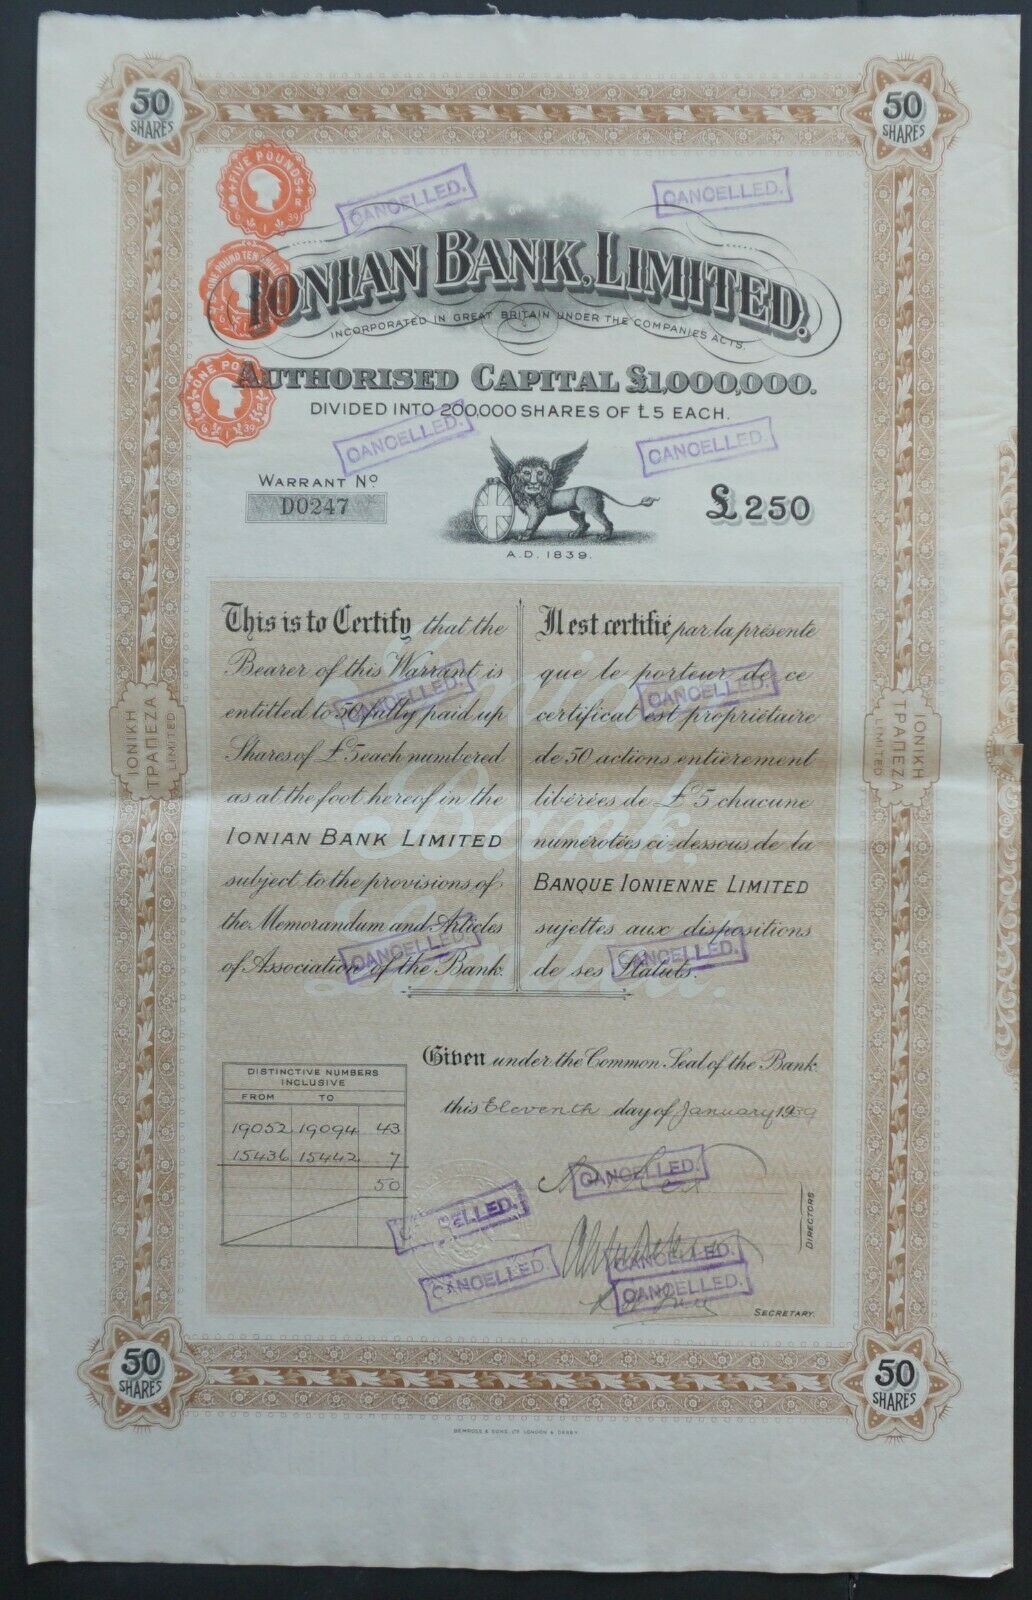 50
SHARES
50
SHARES
FIVE POUNDS
6 1 39
CANCELLED.
CANCELLED.
ONE POUND TEN
6 1
IONIAN BANK, LIMITED.
INCORPORATED IN GREAT BRITAIN UNDER THE COMPANIES ACTS.
ONE POUND
6 1 39
AUTHORISED CAPITAL £1,000,000.
DIVIDED INTO 200,000 SHARES OF £5 EACH.
CANCELLED.
CANCELLED.
WARRANT No
D0247
A.D. 1839.
£250
This is to Certify that the
Bearer of this Warrant is
entitled to 50 fully paid up
Shares of £5 each numbered
as at the foot hereof in the
IONIAN BANK LIMITED
subject to the provisions of
the Memorandum and Articles
of Association of the Bank.
Il est certifié par la présente
que le porteur de ce
certificat est propriétaire
de 50 actions entièrement
libérées de £5 chacune
numérotées ci-dessous de la
BANQUE IONIENNE LIMITED
sujettes aux dispositions
de ses Statuts.
CANCELLED.
CANCELLED.
CANCELLED.
CANCELLED.
Ionian
Bank.
Limited.
ΙΟΝΙΚΗ
ΤΡΑΠΕΖΑ
LIMITED
ΙΟΝΙΚΗ
ΤΡΑΠΕΖΑ
LIMITED
Given under the Common Seal of the Bank
this Eleventh day of January 1939
DISTINCTIVE NUMBERS
INCLUSIVE
FROM TO
19052 19094 43
15436 15442 7
50
CANCELLED.
CANCELLED.
CANCELLED.
CANCELLED.
CANCELLED.
DIRECTORS
SECRETARY.
50
SHARES
50
SHARES
BEMROSE & SONS, LTD LONDON & DERBY